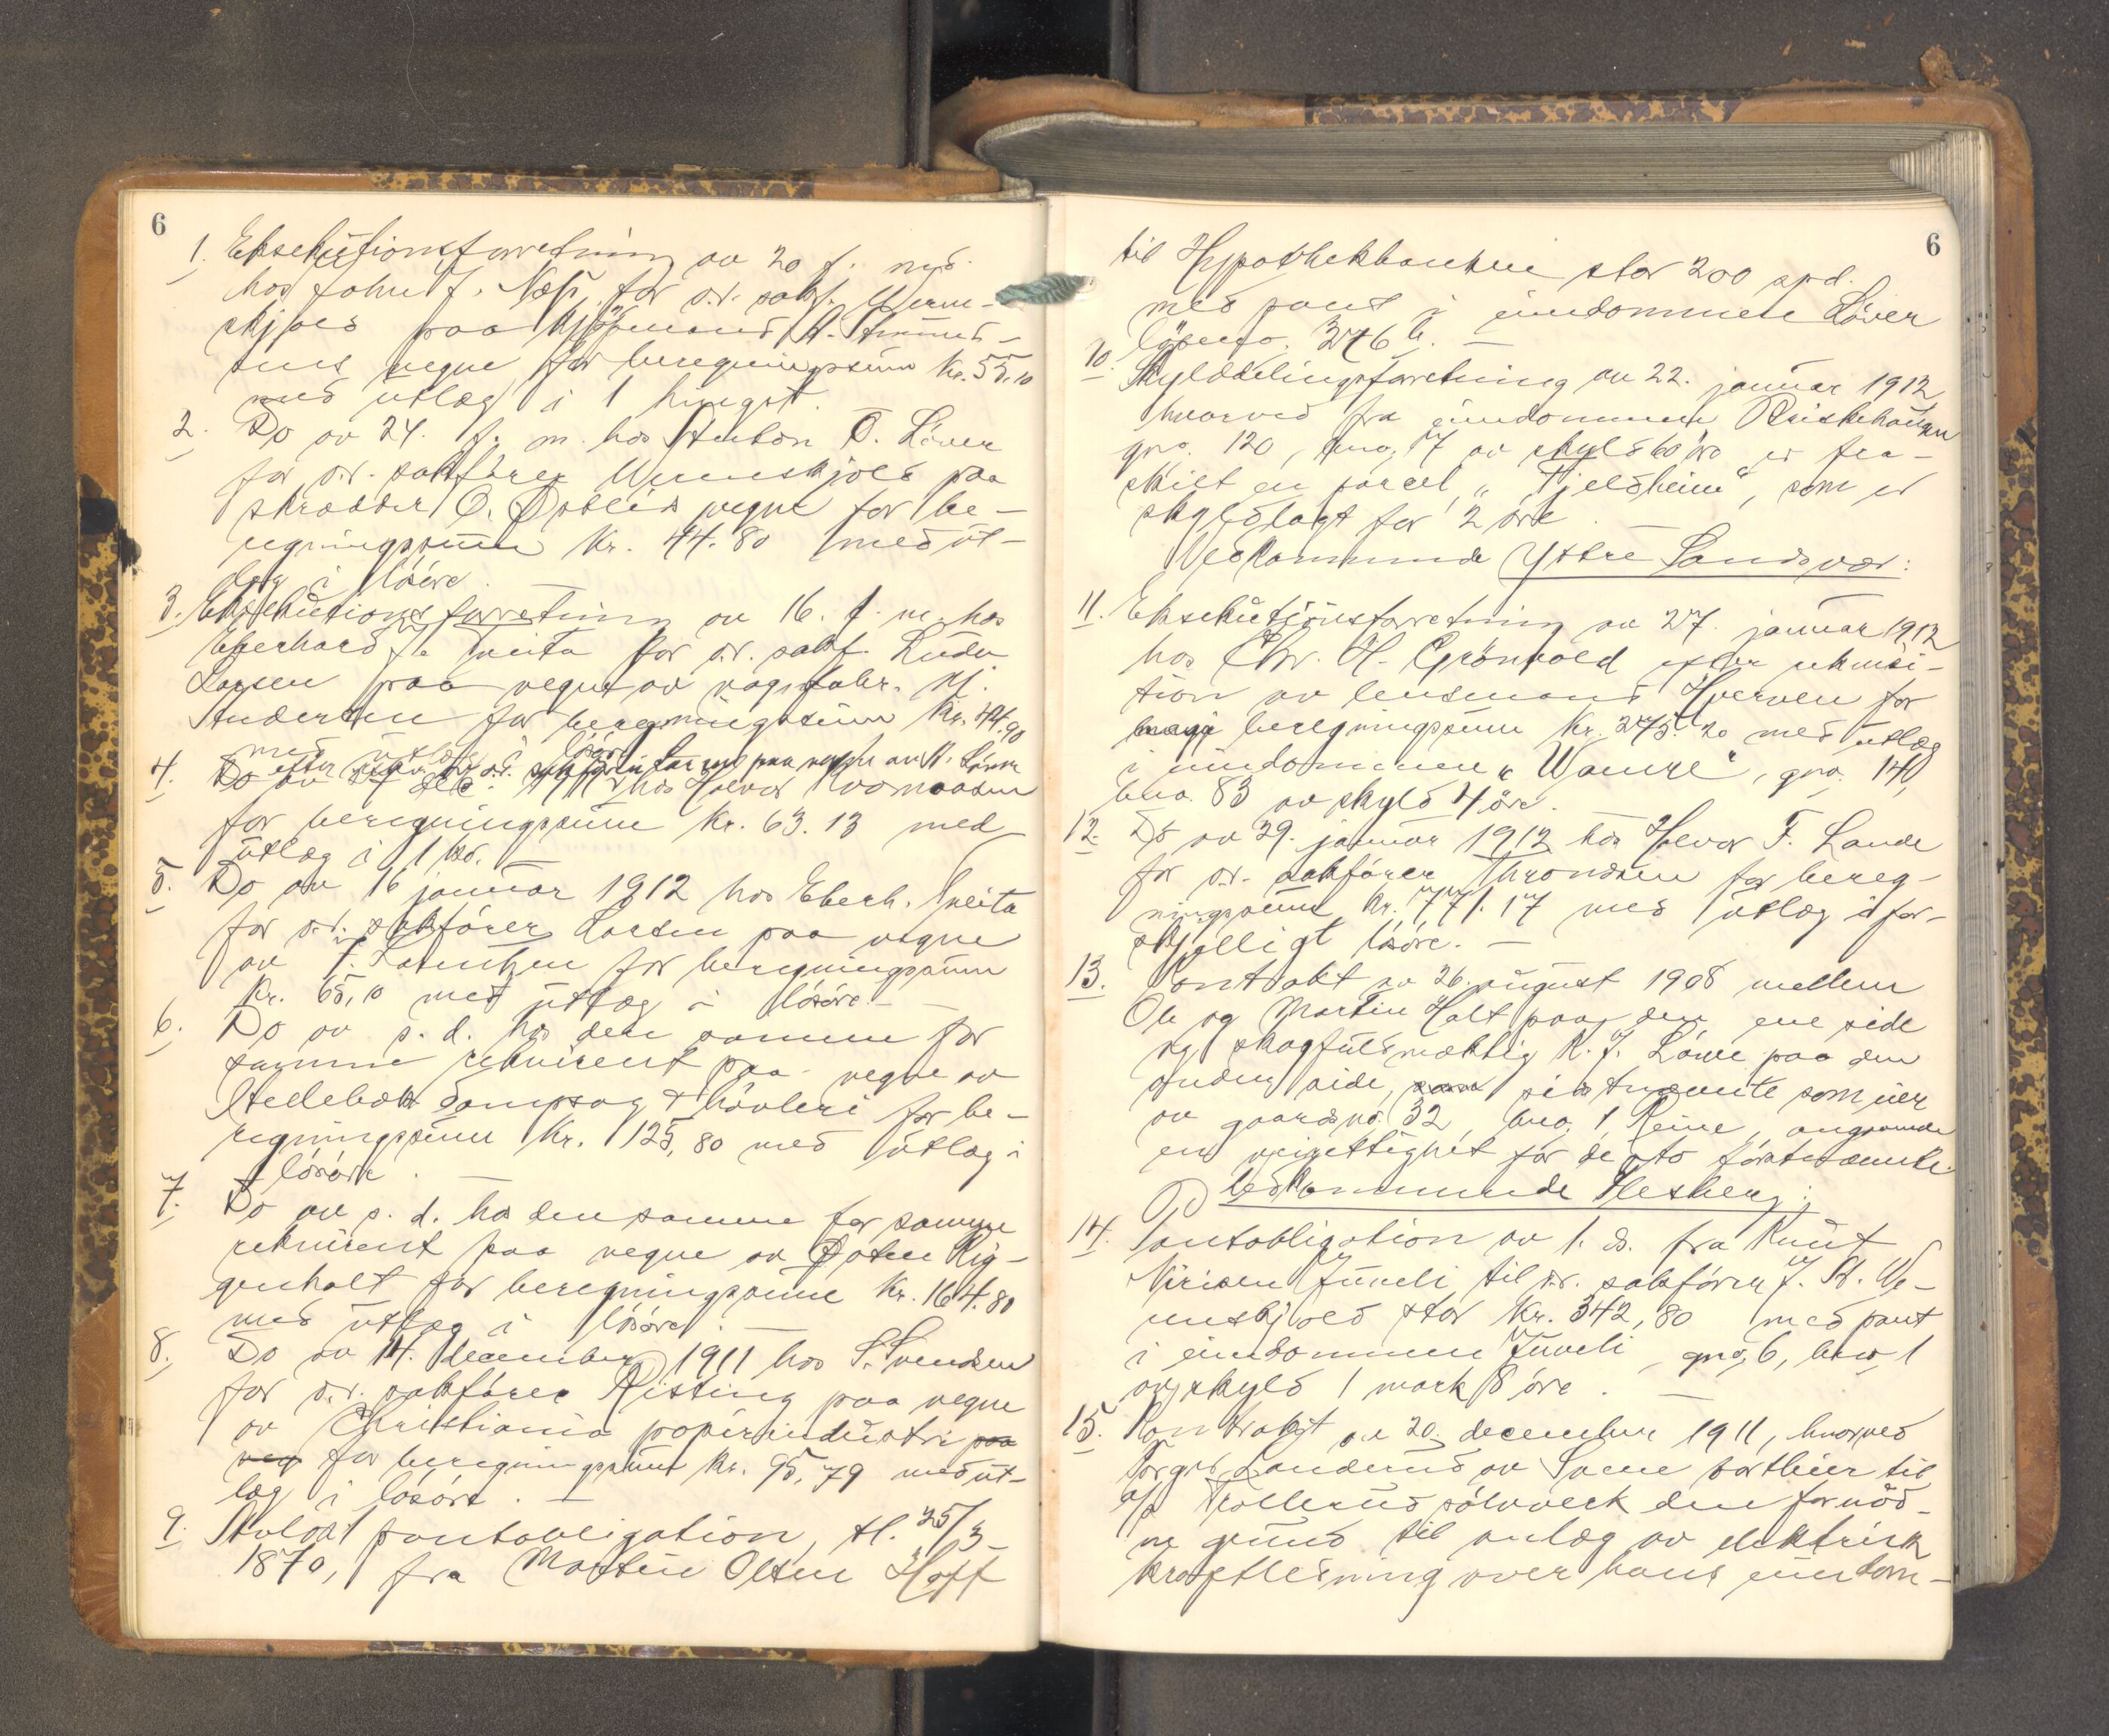 6
1. Eksekutionsforretning av 20 f. md.
hos John J. Næss for o.r. sakf. Wenn-
skjoes paa kjøpmand A. Amund-
sens vegne for beregningssum Kr. 55,10
med utlæg i 1 hingst.
2. Do av 24. f. m. hos Anton O. Löver
for o.r. sakfører Wennskjoes paa
skrædder O. Opsein vegne for be-
regningssum Kr. 44.80 med ut-
læg i løsøre.
3. Eksekutionsforretning av 16. f. m. hos
Eberhard Sneita for o.r. sakf. Ludv
Larsen paa vegne av vognfabr. Kj.
Andersen for beregningssum Kr. 44.90
med utlæg i løsøre
efter rekv. av o.r. sakfører Larsen paa vegne av H. Löver
4. Do av 27 dec. 1911 hos Halvor Kvornaasen
for beregningssum Kr. 63.13 med
utlæg i 1 ko.
5. Do av 16 januar 1912 hos Eberh. Sneita
for o.r. sakfører Larsen paa vegne
av F. Lorentzen for beregningssum
Kr. 65,10 med utlæg i løsøre. –
6. Do av s. d. hos den samme for
samme rekvirent paa vegne av
Stellebæk Dampsag & høvleri for be-
regningssum Kr. 125,80 med utlæg i
løsøre. –
7. Do av s. d. hos den samme for samme
rekvirent paa vegne av Osten Rig-
genholt for beregningssum Kr. 164.80
med utlæg i løsøre. –
8. Do av 14. december 1911 hos S. Svendsen
for o.r. sakfører Risting paa vegne
av Christiania papirindustri paa
veg for beregningssum Kr. 95,79 med ut-
læg i løsøre. –
9. Avlöst pantobligation, tl. 25/3
1870, fra Martin Olsen Hoff
6
til Hypothekbanken stor 200 spd.
med pant i eiendommen Löver
løpeno. 346 b. –
10. Skylddelingsforretning av 22. januar 1912
hvorved fra eiendommen Reiskehaugen
gno. 120, bno. 7 av skyld 60 øre er fra-
skilt en parcel, "Fjeldheim", som er
skyldlagt for 2 øre.
Vedkommende Yttre Sandsvær:
11. Eksekutionsforretning av 27. januar 1912
hos Chr. H. Grönvold efter rekvisi-
tion av lensmand Hverven for
beregningssum Kr. 275.20 med utlæg
i eiendommen "Wamre", gno. 140,
bno. 83 av skyld 4 øre.
12. Do av 29. januar 1912 hos Halvor T. Lande
for o.r. sakfører Throndsen for bereg-
ningssum Kr. 771.17 med utlæg i for-
skjelligt løsøre. –
13. Kontrakt av 26. august 1908 mellem
Ole og Martin Holt paa den ene side
og skogfuldmægtig K. J. Löwe paa den
anden side, som sidstnævnte som eier
av gaardsno. 32, bno. 1 Reine, angaaende
en veirettighet for de to førstnævnte.
Vedkommende Flesberg:
14. Pantobligation av 1. ds. fra Knut
Nirisen Juveli til o.r. sakfører J. St. We-
nnskjold stor Kr. 342,80 med pant
i eiendommen Juveli, gno. 6, bno. 1
av skyld 1 mark 8 øre. –
15. Kontrakt av 20. december 1911, hvorved
Torger Landerud av Svene bortleier til
a/s Trollerud sølvverk den fornød-
ne grund til anlæg av elektrisk
kraftledning over hans eiendom-